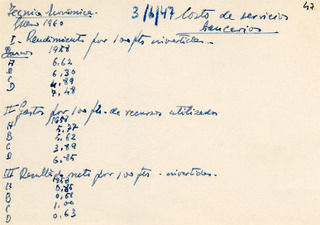 47
Tecnica Economica. 3/6/47 Costo de servicios
Enero 1960 bancarios
I - Rendimiento por 100 pts invertidas.
Bancos 1958
A 6.62
B 6.30
C 4.89
D 7.48
II - Gastos por 100 pts. de recursos utilizados
1958
A 5.77
B 5.62
C 3.89
D 6.85
III Resultado neto por 100 pts. invertidas.
1958
0.85
B 0.68
C 1.00
D 0.63